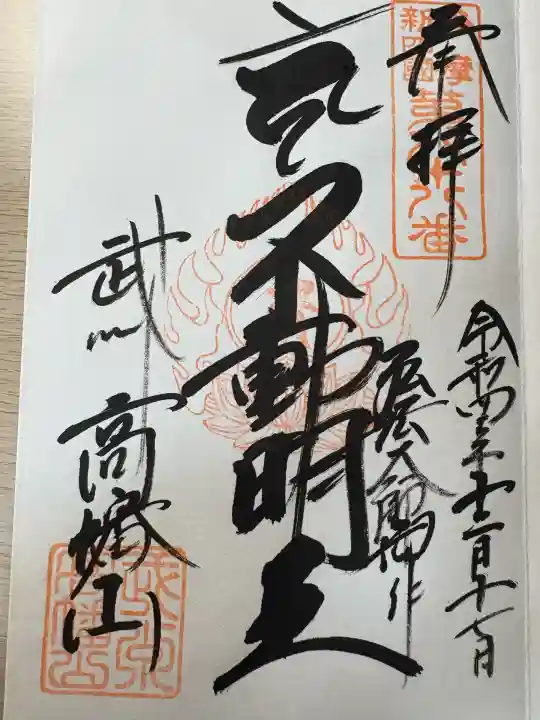 奉拝
多摩
新四國
八十八番
令和四年十二月十七日
弘法大師御作
不動明王
武州
高幡山